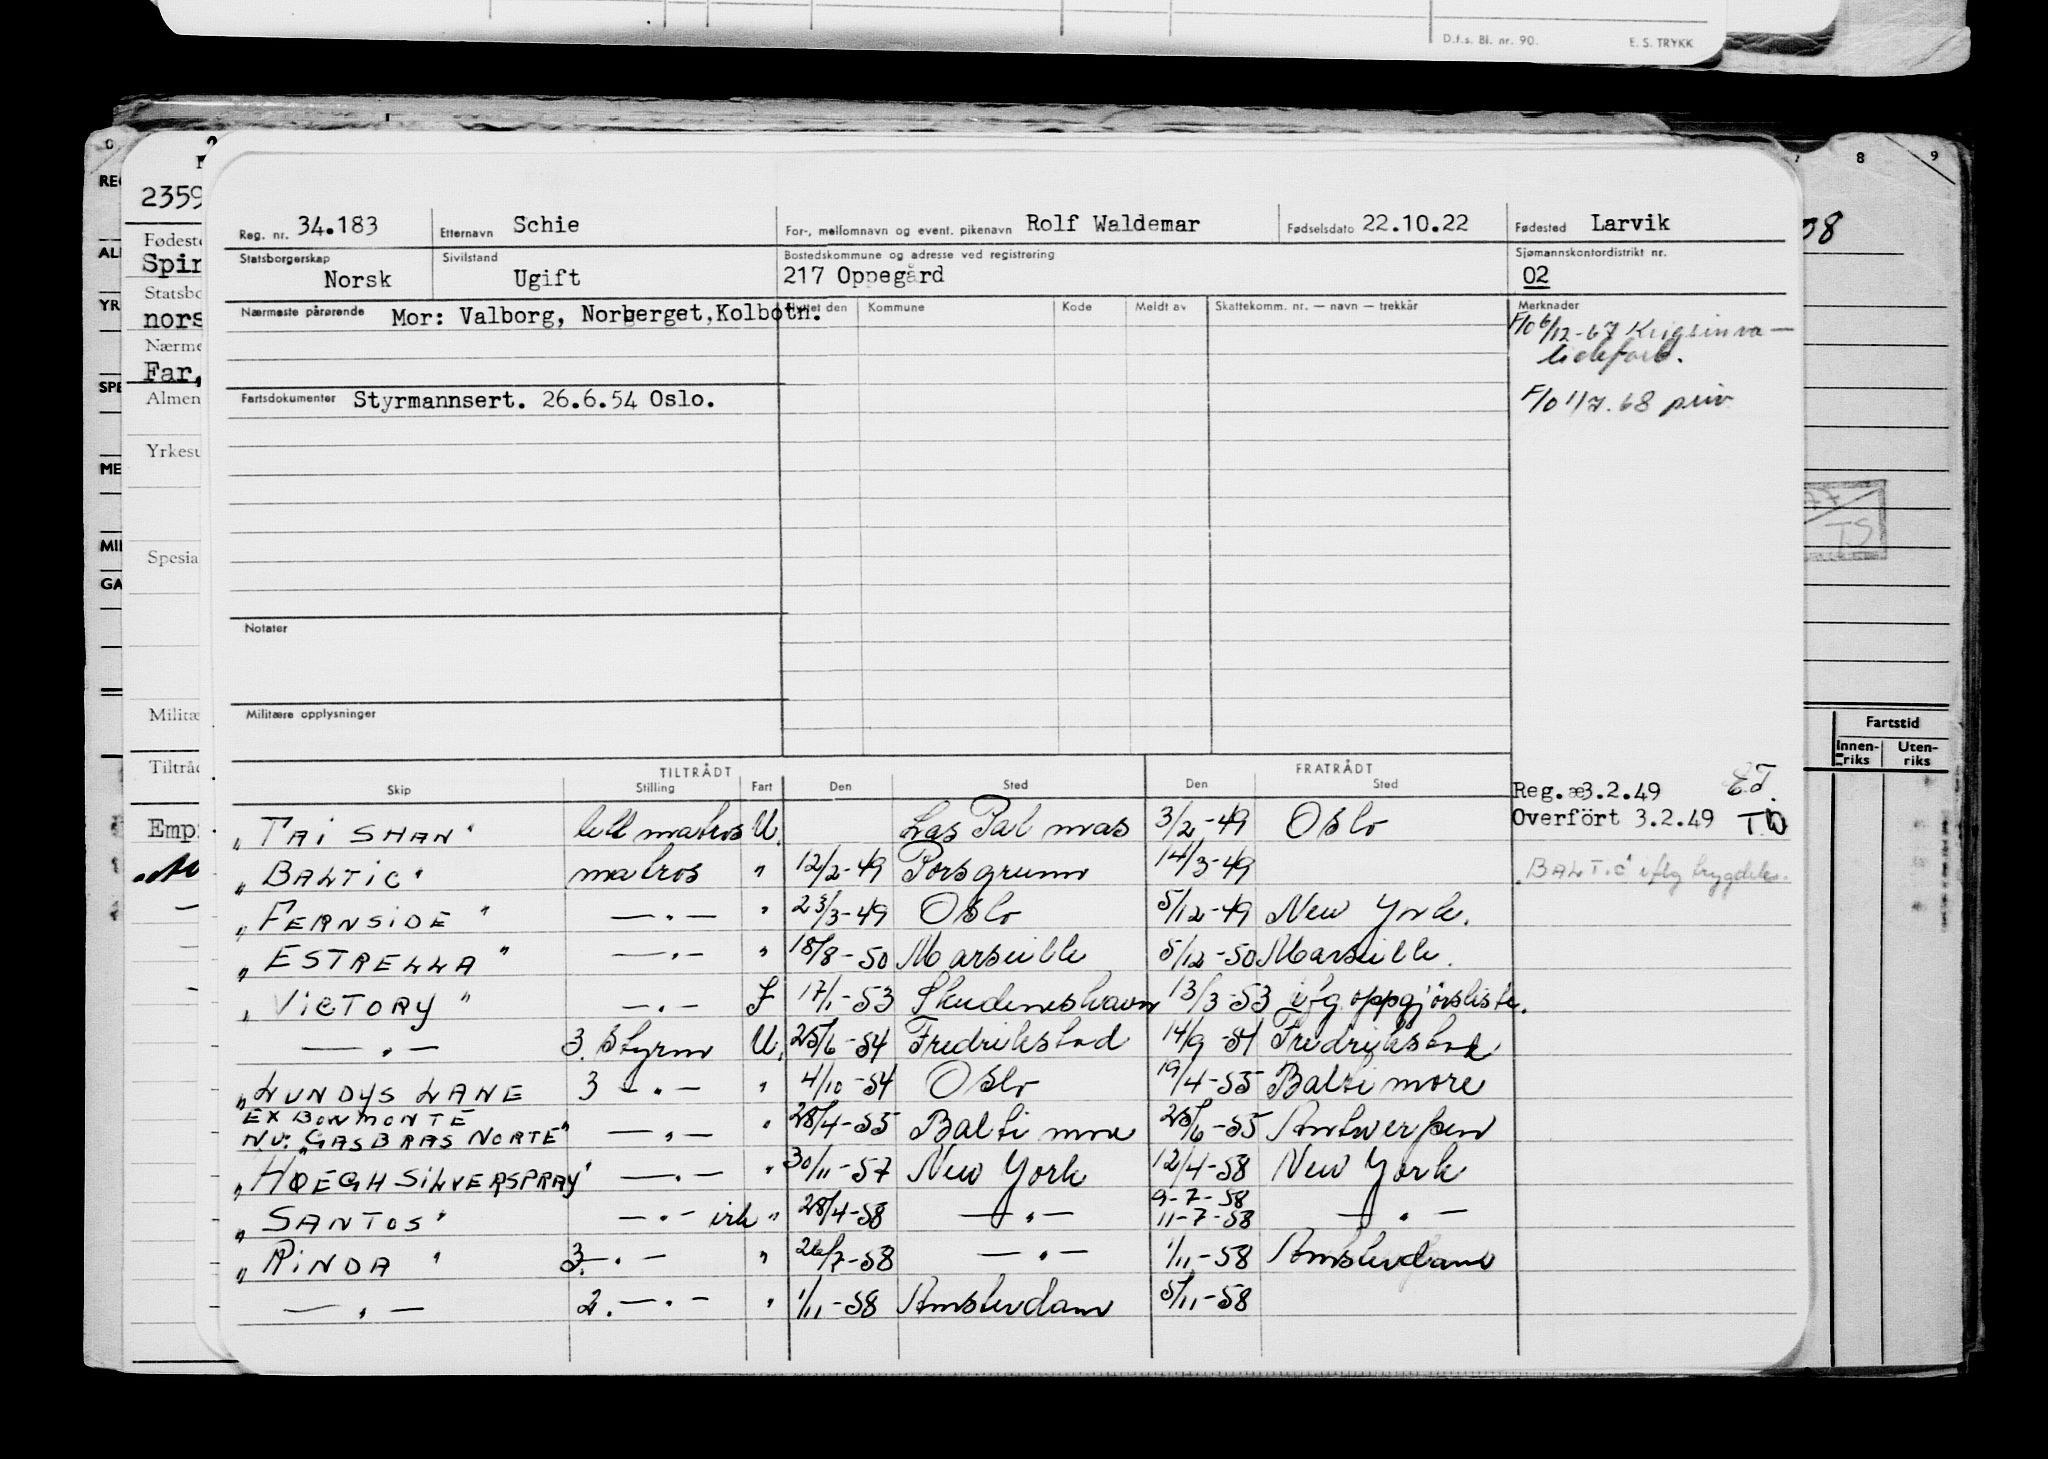 D.f.s. Bl. nr. 90. E. S. TRYKK
8 9
Reg. nr. 34.183 Etternavn Schie For-, mellomnavn og event. pikenavn Rolf Waldemar Fødselsdato 22.10.22 Fødested Larvik
Statsborgerskap Norsk Sivilstand Ugift Bostedskommune og adresse ved registrering 217 Oppegård Sjømannskontordistrikt nr. 02
Nærmeste pårørende Mor: Valborg, Norberget, Kolbotn. Flyttet den Kommune Kode Meldt av Skattekomm. nr. — navn — trekkår Merknader
F/o 6/12-67 Krigsinva-
lideforb.
Fartsdokumenter Styrmannsert. 26.6.54 Oslo. F/o 1/7.68 priv
Notater
Militære opplysninger
TILTRÅDT FRATRÅDT
Skip Stilling Fart Den Sted Den Sted
Reg. æ3.2.49 E.T.
Overført 3.2.49 T.W
"TAI SHAN" lett matros U. Las Palmas 3/2-49 Oslo
"BALTIC" matros " 12/2-49 Porsgrunn 14/3-49 "BALTIC" iflg trygdeks.
"FERNSIDE" — " — " 23/3-49 Oslo 5/12-49 New York.
"ESTRELLA" — " — " 18/8-50 Marseille 5/12-50 Marseille.
"VICTORY" — " — I 17/1-53 Skudeneshavn 13/3-53 ifg oppgjørsliste.
— " — 3. Styrm U. 25/6-54 Fredrikstad 14/9-54 Fredrikstad
"LUNDYS LANE 3 — " — " 4/10-54 Oslo 19/4-55 Baltimore
EX BONMONTE
NU: GASBRAS NORTE" — " — " 28/4-55 Baltimore 25/6-55 Antwerpen
"HØEGH SILVERSPRAY" — " — " 30/11-57 New York 12/4-58 New York
9-7-58
"SANTOS" — " — irk " 28/4-58 — " — 11-7-58 — " —
"RINDA" 3. — " — " 26/7-58 — " — 1/11-58 Amsterdam
— " — 2. — " — " 1/11-58 Amsterdam 5/11-58
2359
Spin
nors
Far,
Almen
Yrkesu
Spesia
Militæ
Tiltråd
Emp
08
TS
Fartstid
Innen-riks Uten-riks